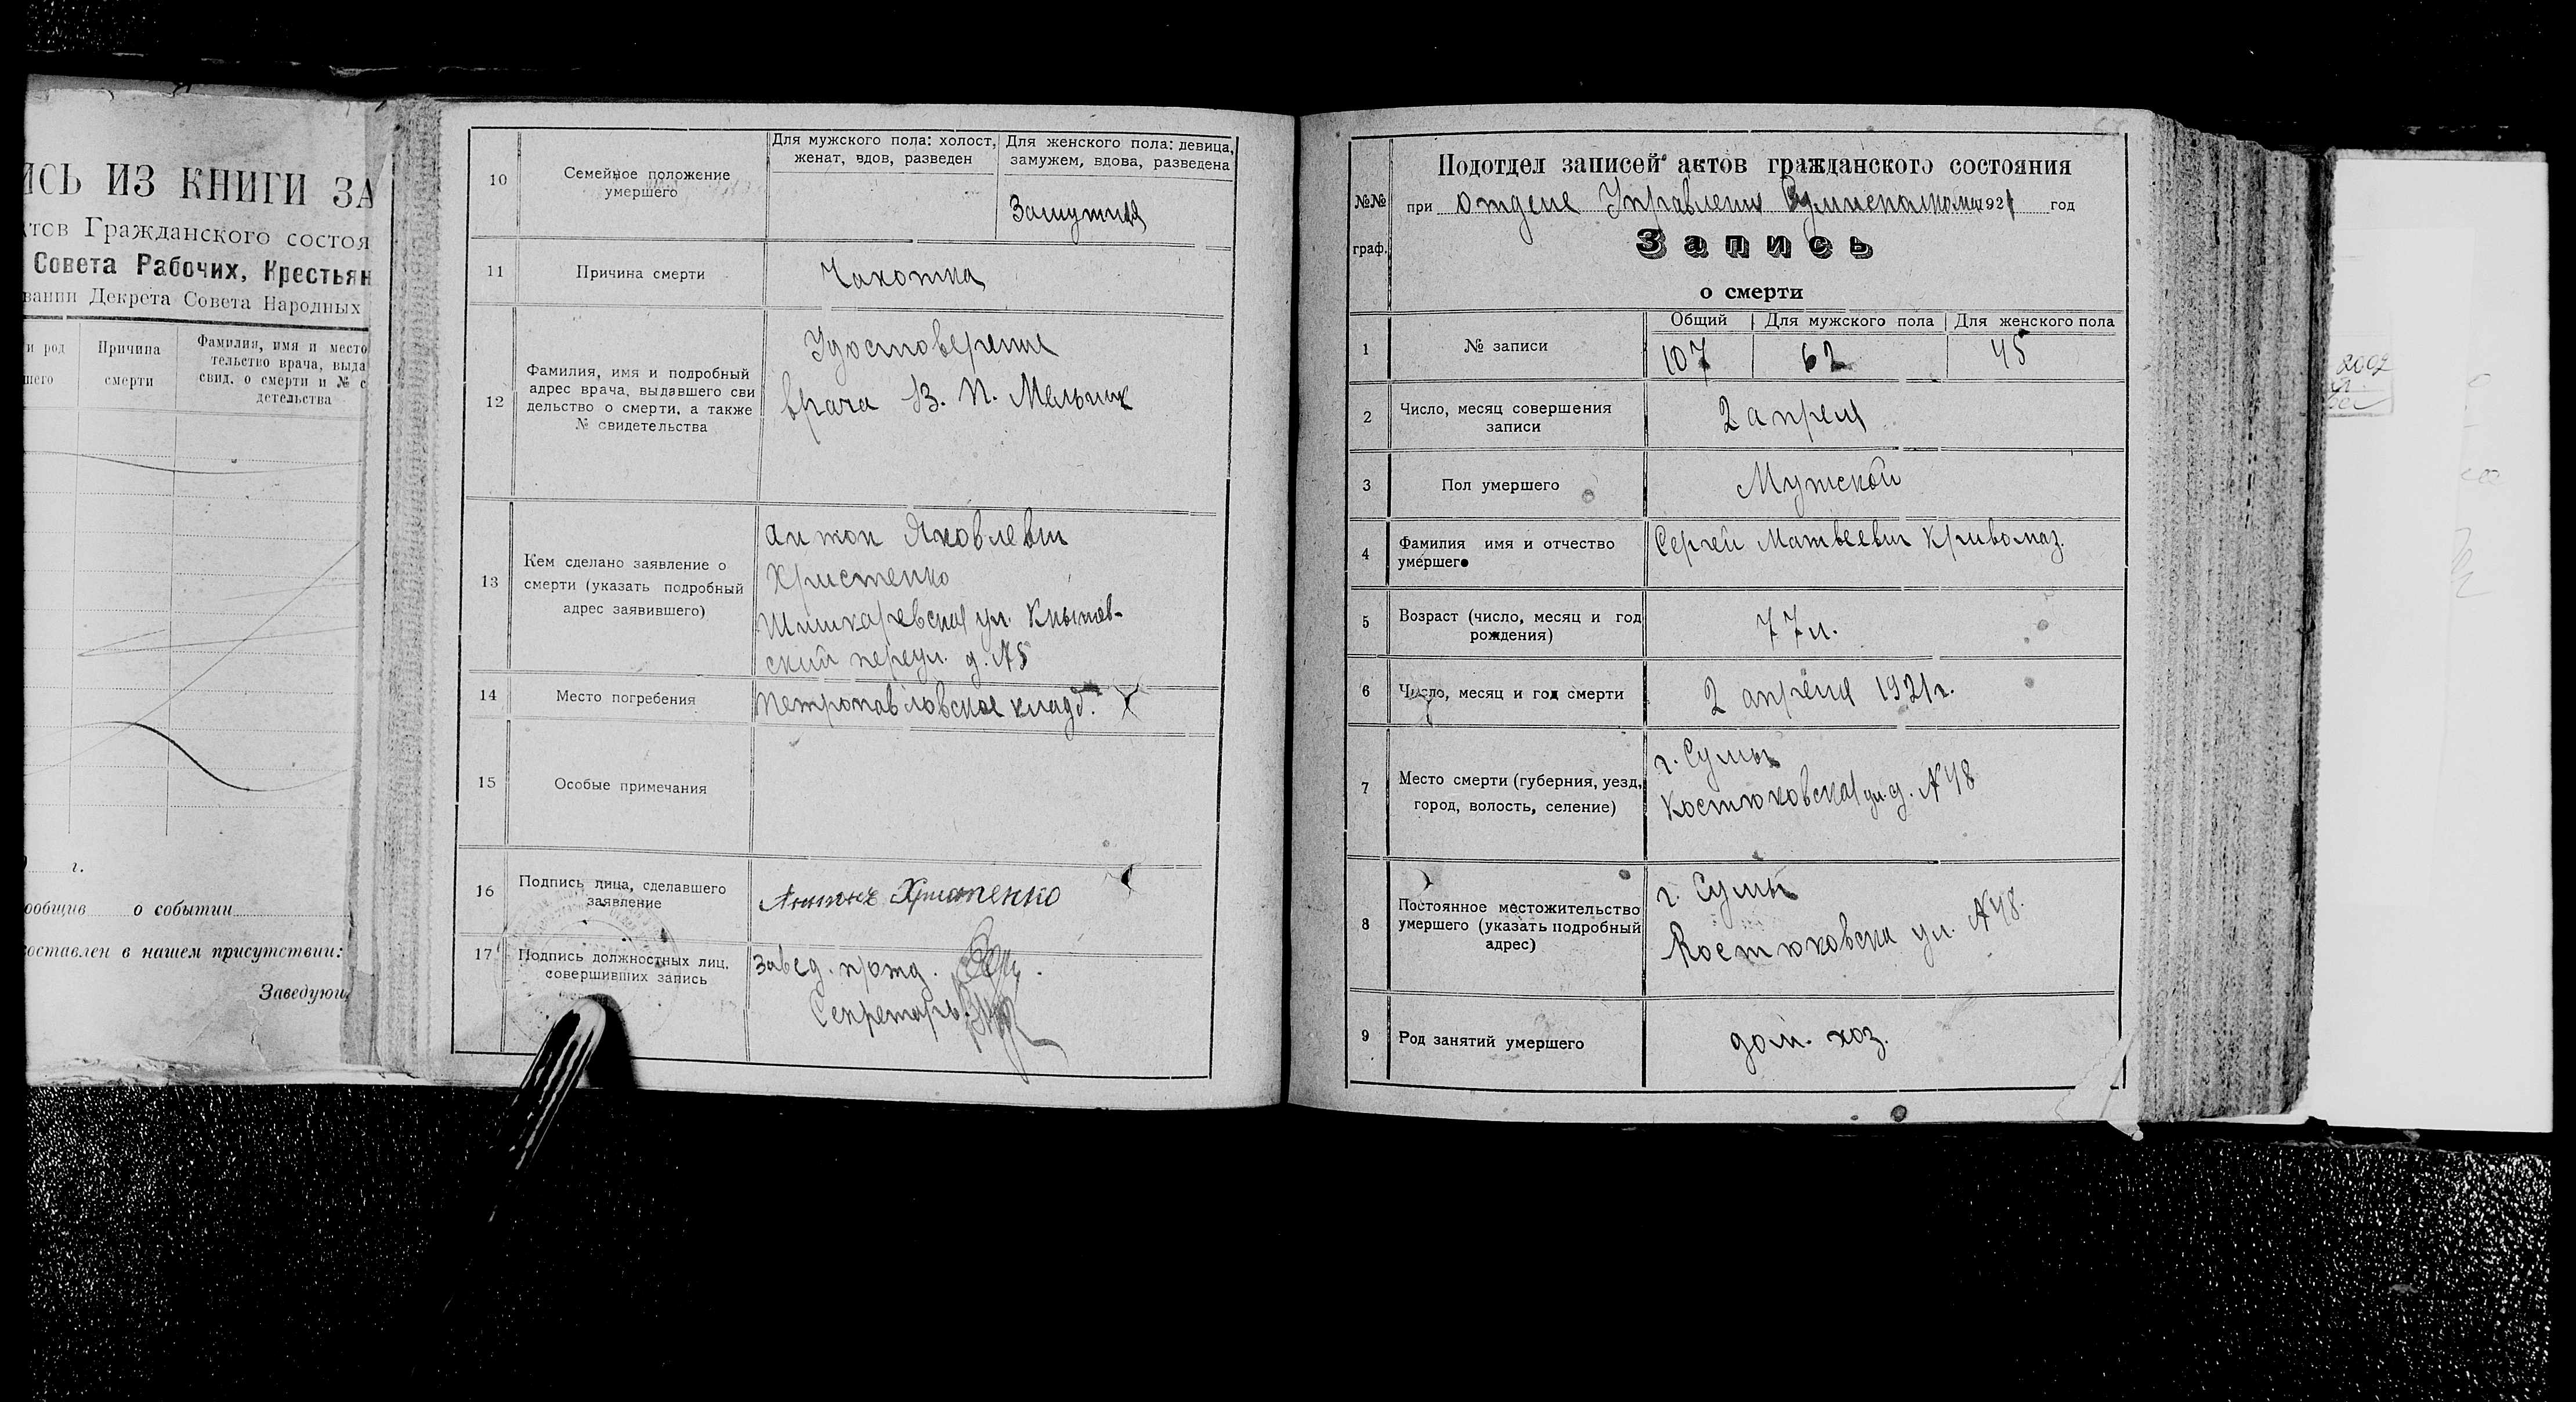 ИСЬ ИЗ КНИГИ ЗА
тов Гражданского состоя
Совета Рабочих, Крестьян
вании Декрета Совета Народных
и род
шего
Причина
смерти
Фамилия, имя и место
тельство врача, выда
свид. о смерти и № с
детельства
г.
ообщив о событии
составлен в нашем присутствии:
Заведующ
10
Семейное положение
умершего
Для мужского пола: холост,
женат, вдов, разведен
Для женского пола: девица,
замужем, вдова, разведена
Замужняя
11
Причина смерти
Чахотка
12
Фамилия, имя и подробный
адрес врача, выдавшего сви
дельство о смерти, а также
№ свидетельства
Удостоверение
врача В. П. Мельник
13
Кем сделано заявление о
смерти (указать подробный
адрес заявившего)
Антон Яковлевич
Христенко
Шишкаревская ул.
ский переул. д. №5
14
Место погребения
Петропавловское кладб.
15
Особые примечания
16
Подпись лица, сделавшего
заявление
Антонъ Христенко
17
Подпись должностных лиц,
совершивших запись
Завед. п/отд.
Секретарь
№№
граф.
Подотдел записей актов гражданского состояния
при отделе Управления 1921 год
Запись
о смерти
1
№ записи
Общий
Для мужского пола
Для женского пола
107
62
45
2
Число, месяц совершения
записи
2 апреля
3
Пол умершего
Мужской
4
Фамилия имя и отчество
умершего
Сергей Матвеевич Кривомаз.
5
Возраст (число, месяц и год
рождения)
77 л.
6
Число, месяц и год смерти
2 апреля 1921 г.
7
Место смерти (губерния, уезд,
город, волость, селение)
г. Сумы
Костюковская ул. д. №48
8
Постоянное местожительство
умершего (указать подробный
адрес)
г. Сумы
Костюковска ул. №48.
9
Род занятий умершего
дом. хоз.
2002